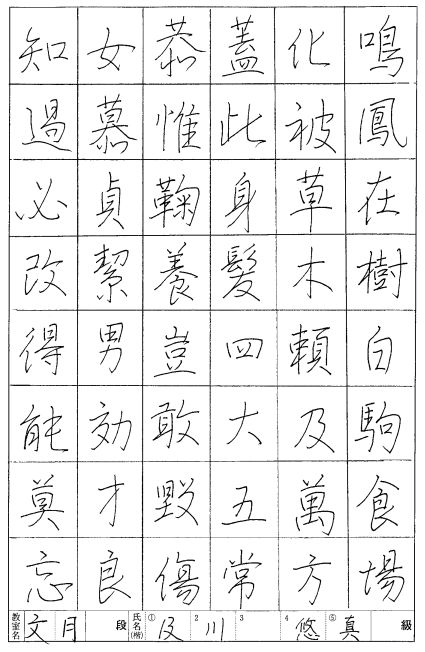 鳴鳳在樹白駒食場
化被草木頼及萬方
蓋此身髪四大五常
恭惟鞠養豈敢毀傷
女慕貞絜男効才良
知過必改得能莫忘
教室名 文月 段 氏名(楷) ① 及 2 川 3 4 悠 ⑤ 真 級